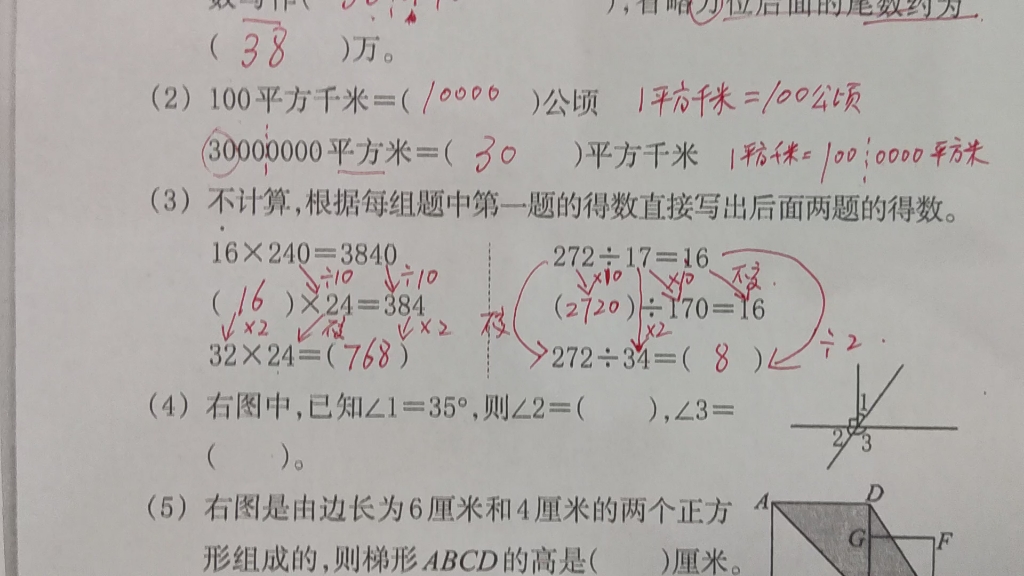 ),省略万位后面的尾数约为
( 38 )万。
(2) 100平方千米=( 10000 )公顷 1平方千米=100公顷
30000000平方米=( 30 )平方千米 1平方千米=1000000平方米
(3) 不计算,根据每组题中第一题的得数直接写出后面两题的得数。
16×240=3840 272÷17=16
÷10 ÷10 ×10 ×10 不变
( 16 )×24=384 (2720)÷170=16
×2 不变 ×2 不变 ×2 ÷2
32×24=(768) 272÷34=( 8 )
(4) 右图中,已知∠1=35°,则∠2=( ),∠3=
( )。
1
2 3
(5) 右图是由边长为6厘米和4厘米的两个正方
形组成的,则梯形ABCD的高是( )厘米。
A D
G F